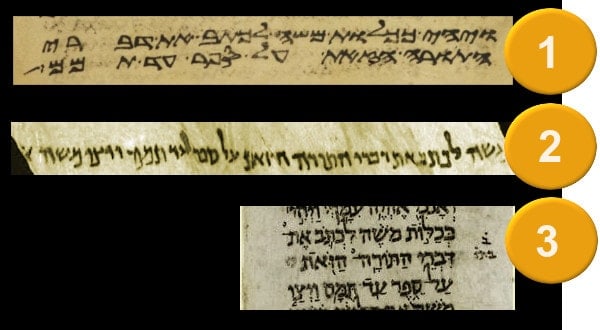 ויהי ככלות משה לכתב את דברי
התורה הזאת על ספר עד תמם
1
משה לכתב את דברי התורה הזאת על ספר עד תמם ויצו משה
2
אהיה עמך ויהי
כְּכַלּוֹת מֹשֶׁה לִכְתֹּב אֶת
דִּבְרֵי הַתּוֹרָה הַזֹּאת
עַל סֵפֶר עַד תֻּמָּם וַיְצַו
3